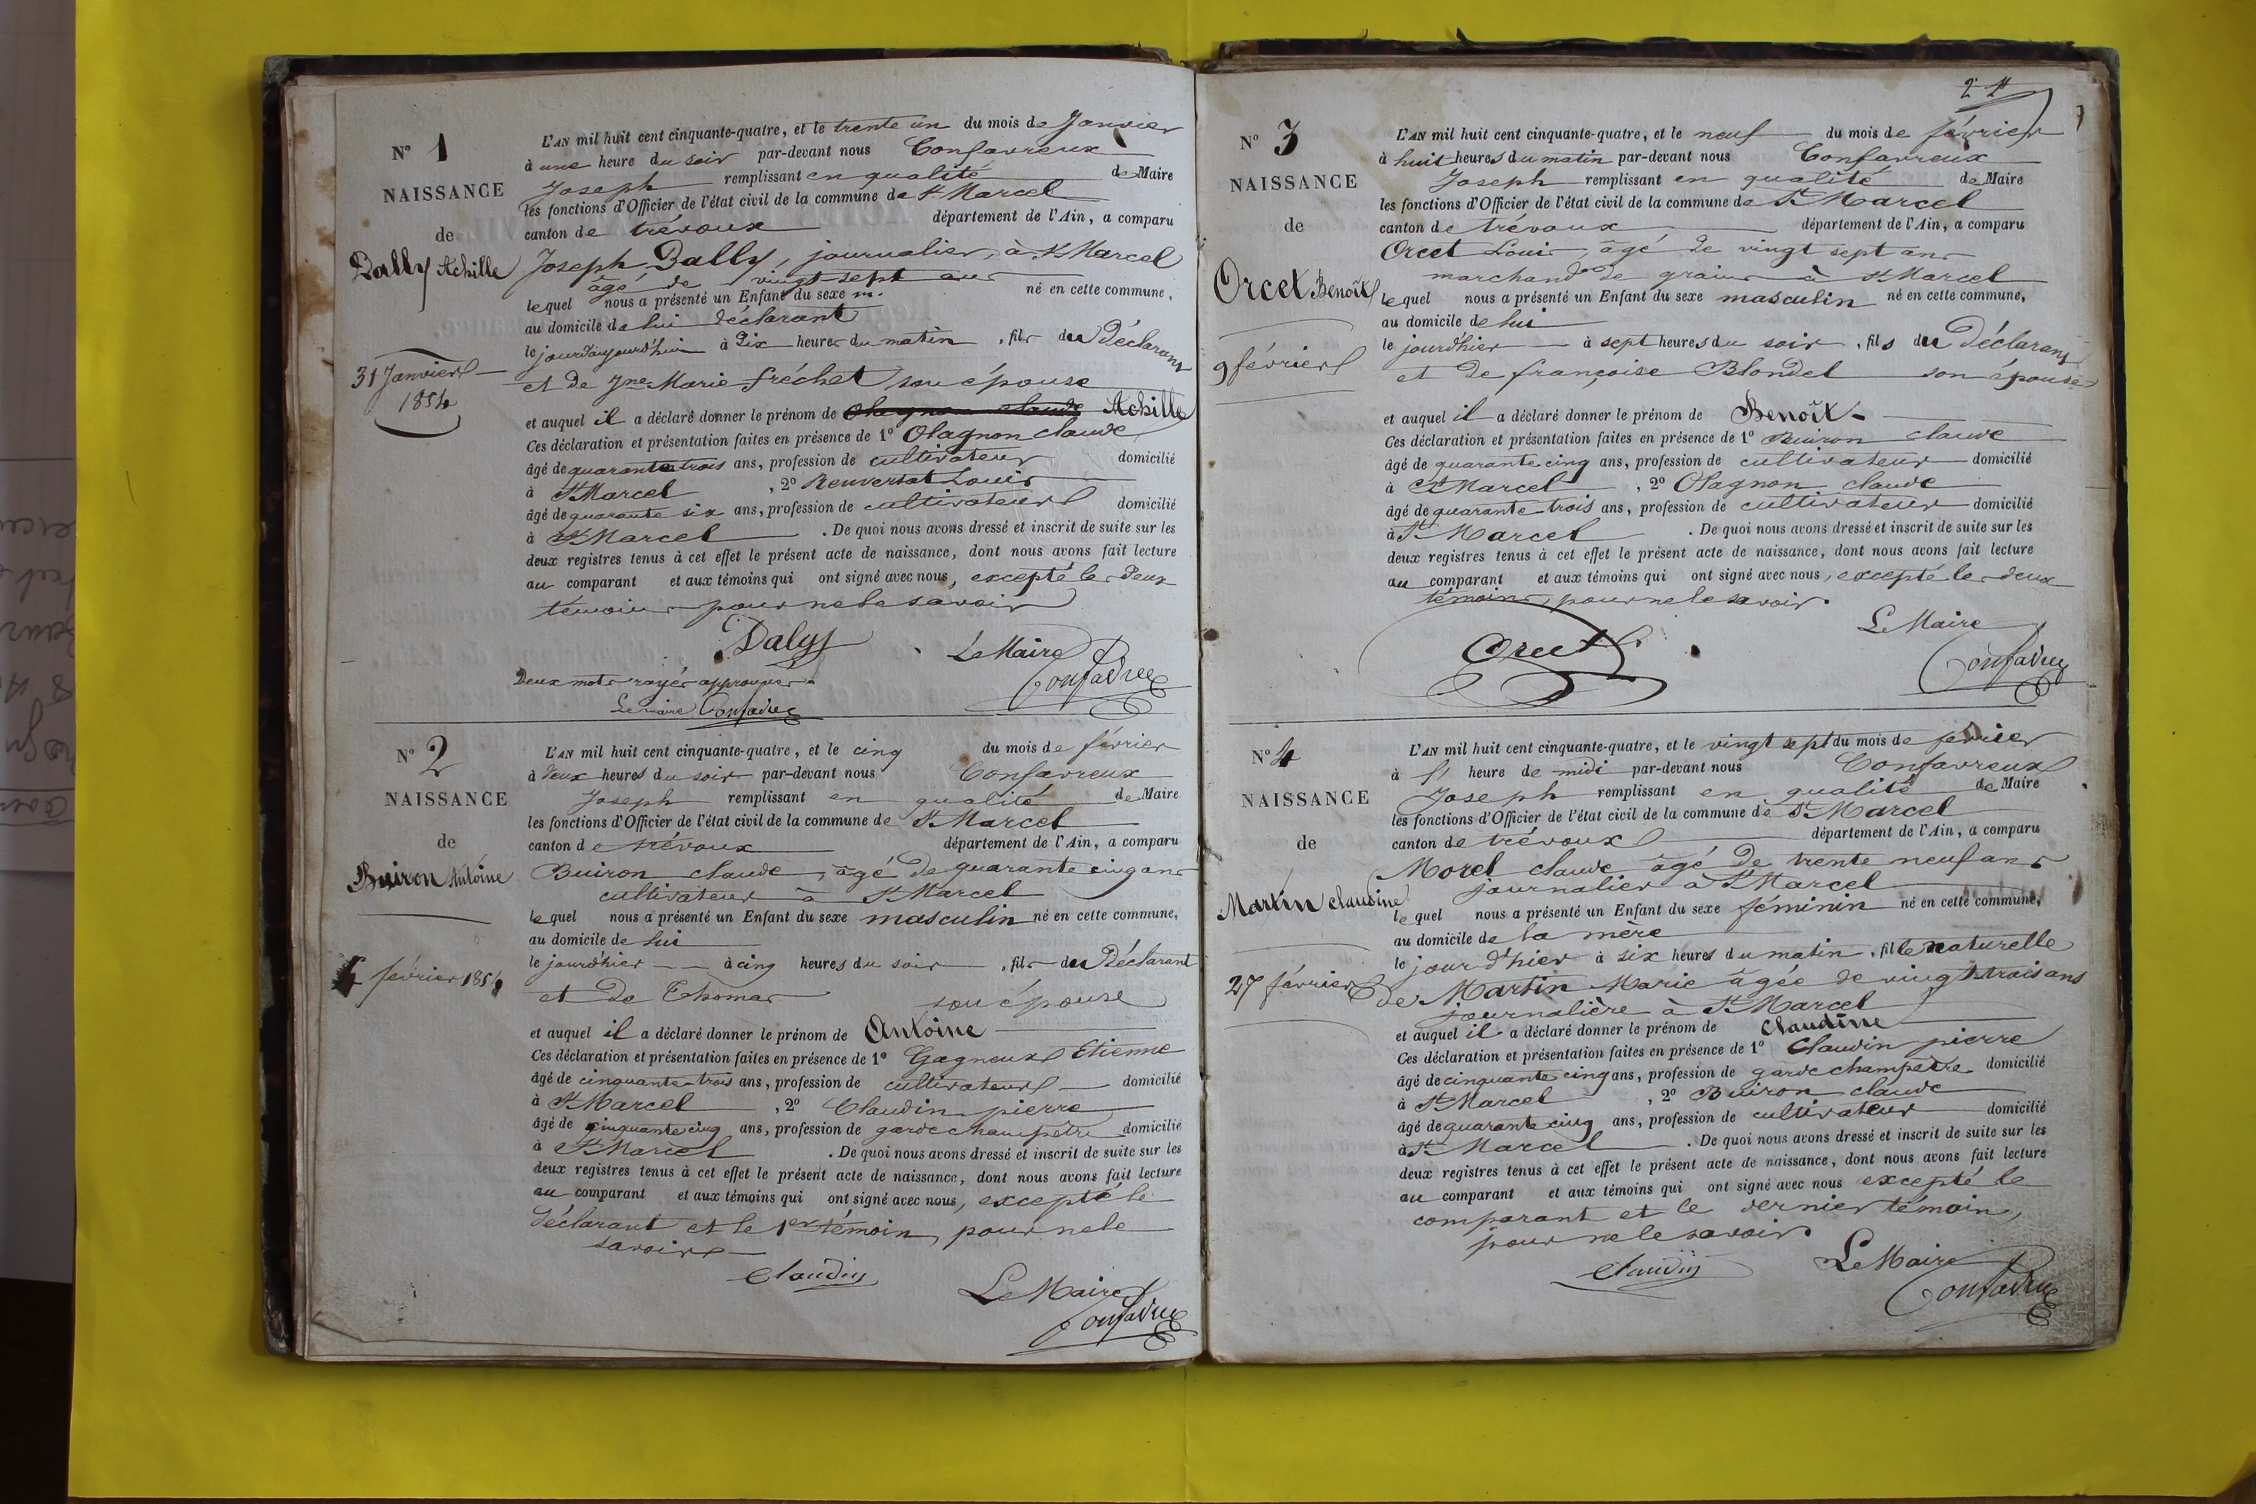 N° 1
NAISSANCE
de
Dally Achille
31 Janvier
1854
L'AN mil huit cent cinquante-quatre, et le trente un du mois de Janvier
à une heure du soir par-devant nous Confavreux
Joseph remplissant en qualité de Maire
les fonctions d'Officier de l'état civil de la commune de St Marcel
canton de trévoux département de l'Ain, a comparu
Joseph Dally, journalier, à St Marcel
âgé de vingt sept ans
lequel nous a présenté un Enfant du sexe m. né en cette commune,
au domicile de lui déclarant
le jourd'aujourd'hui à Dix heures du matin, fils du Déclarant
et de Jne Marie fréchet son épouse
et auquel il a déclaré donner le prénom de Olagnon claude Achille
Ces déclaration et présentation faites en présence de 1° Olagnon claude
âgé de quarante trois ans, profession de cultivateur domicilié
à St Marcel, 2° Renversat Louis
âgé de quarante six ans, profession de cultivateur domicilié
à St Marcel. De quoi nous avons dressé et inscrit de suite sur les
deux registres tenus à cet effet le présent acte de naissance, dont nous avons fait lecture
au comparant et aux témoins qui ont signé avec nous, excepté les deux
témoins pour ne le savoir
Daly
Le Maire
Confavreux
Deux mots rayés approuvés
Le maire Confavreux
N° 2
NAISSANCE
de
Buiron Antoine
5 février 1854
L'AN mil huit cent cinquante-quatre, et le cinq du mois de février
à deux heures du soir par-devant nous Confavreux
Joseph remplissant en qualité de Maire
les fonctions d'Officier de l'état civil de la commune de St Marcel
canton de trévoux département de l'Ain, a comparu
Buiron claude, âgé de quarante cinq ans
cultivateur à St Marcel
lequel nous a présenté un Enfant du sexe masculin né en cette commune,
au domicile de lui
le jourd'hier à cinq heures du soir, fils du Déclarant
et de Thomas son épouse
et auquel il a déclaré donner le prénom de Antoine
Ces déclaration et présentation faites en présence de 1° Gagneux Etienne
âgé de cinquante-trois ans, profession de cultivateur domicilié
à St Marcel, 2° Claudin pierre
âgé de cinquante cinq ans, profession de garde champêtre domicilié
à St Marcel. De quoi nous avons dressé et inscrit de suite sur les
deux registres tenus à cet effet le présent acte de naissance, dont nous avons fait lecture
au comparant et aux témoins qui ont signé avec nous, excepté le
déclarant et le 1er témoin, pour ne le
savoir
Claudin
Le Maire
Confavreux
2
N° 3
NAISSANCE
de
Orcet Benoît
9 février
L'AN mil huit cent cinquante-quatre, et le neuf du mois de février
à huit heures du matin par-devant nous Confavreux
Joseph remplissant en qualité de Maire
les fonctions d'Officier de l'état civil de la commune de St Marcel
canton de trévoux département de l'Ain, a comparu
Orcet Louis âgé de vingt sept ans
marchand de grains à St Marcel
lequel nous a présenté un Enfant du sexe masculin né en cette commune,
au domicile de lui
le jourd'hier à sept heures du soir, fils du Déclarant
et de françoise Blondel son épouse
et auquel il a déclaré donner le prénom de Benoît
Ces déclaration et présentation faites en présence de 1° Buiron claude
âgé de quarante cinq ans, profession de cultivateur domicilié
à St Marcel, 2° Olagnon claude
âgé de quarante trois ans, profession de cultivateur domicilié
à St Marcel. De quoi nous avons dressé et inscrit de suite sur les
deux registres tenus à cet effet le présent acte de naissance, dont nous avons fait lecture
au comparant et aux témoins qui ont signé avec nous, excepté les deux
témoins, pour ne le savoir.
Orcet
Le Maire
Confavreux
N° 4
NAISSANCE
de
Martin claudine
27 février
L'AN mil huit cent cinquante-quatre, et le vingt sept du mois de fevrier
à l' heure de midi par-devant nous Confavreux
Joseph remplissant en qualité de Maire
les fonctions d'Officier de l'état civil de la commune de St Marcel
canton de trévoux département de l'Ain, a comparu
Morel claude âgé de trente neuf ans
journalier à St Marcel
lequel nous a présenté un Enfant du sexe féminin né en cette commune,
au domicile de la mère
le jour d'hier à six heures du matin, fille naturelle
de Martin Marie âgée de vingt trois ans
journalière à St Marcel
et auquel il a déclaré donner le prénom de Claudine
Ces déclaration et présentation faites en présence de 1° Claudin pierre
âgé de cinquante cinq ans, profession de garde champêtre domicilié
à St Marcel, 2° Buiron claude
âgé de quarante cinq ans, profession de cultivateur domicilié
à St Marcel. De quoi nous avons dressé et inscrit de suite sur les
deux registres tenus à cet effet le présent acte de naissance, dont nous avons fait lecture
au comparant et aux témoins qui ont signé avec nous excepté le
comparant et le dernier témoin,
pour ne le savoir.
Claudin
Le Maire
Confavreux